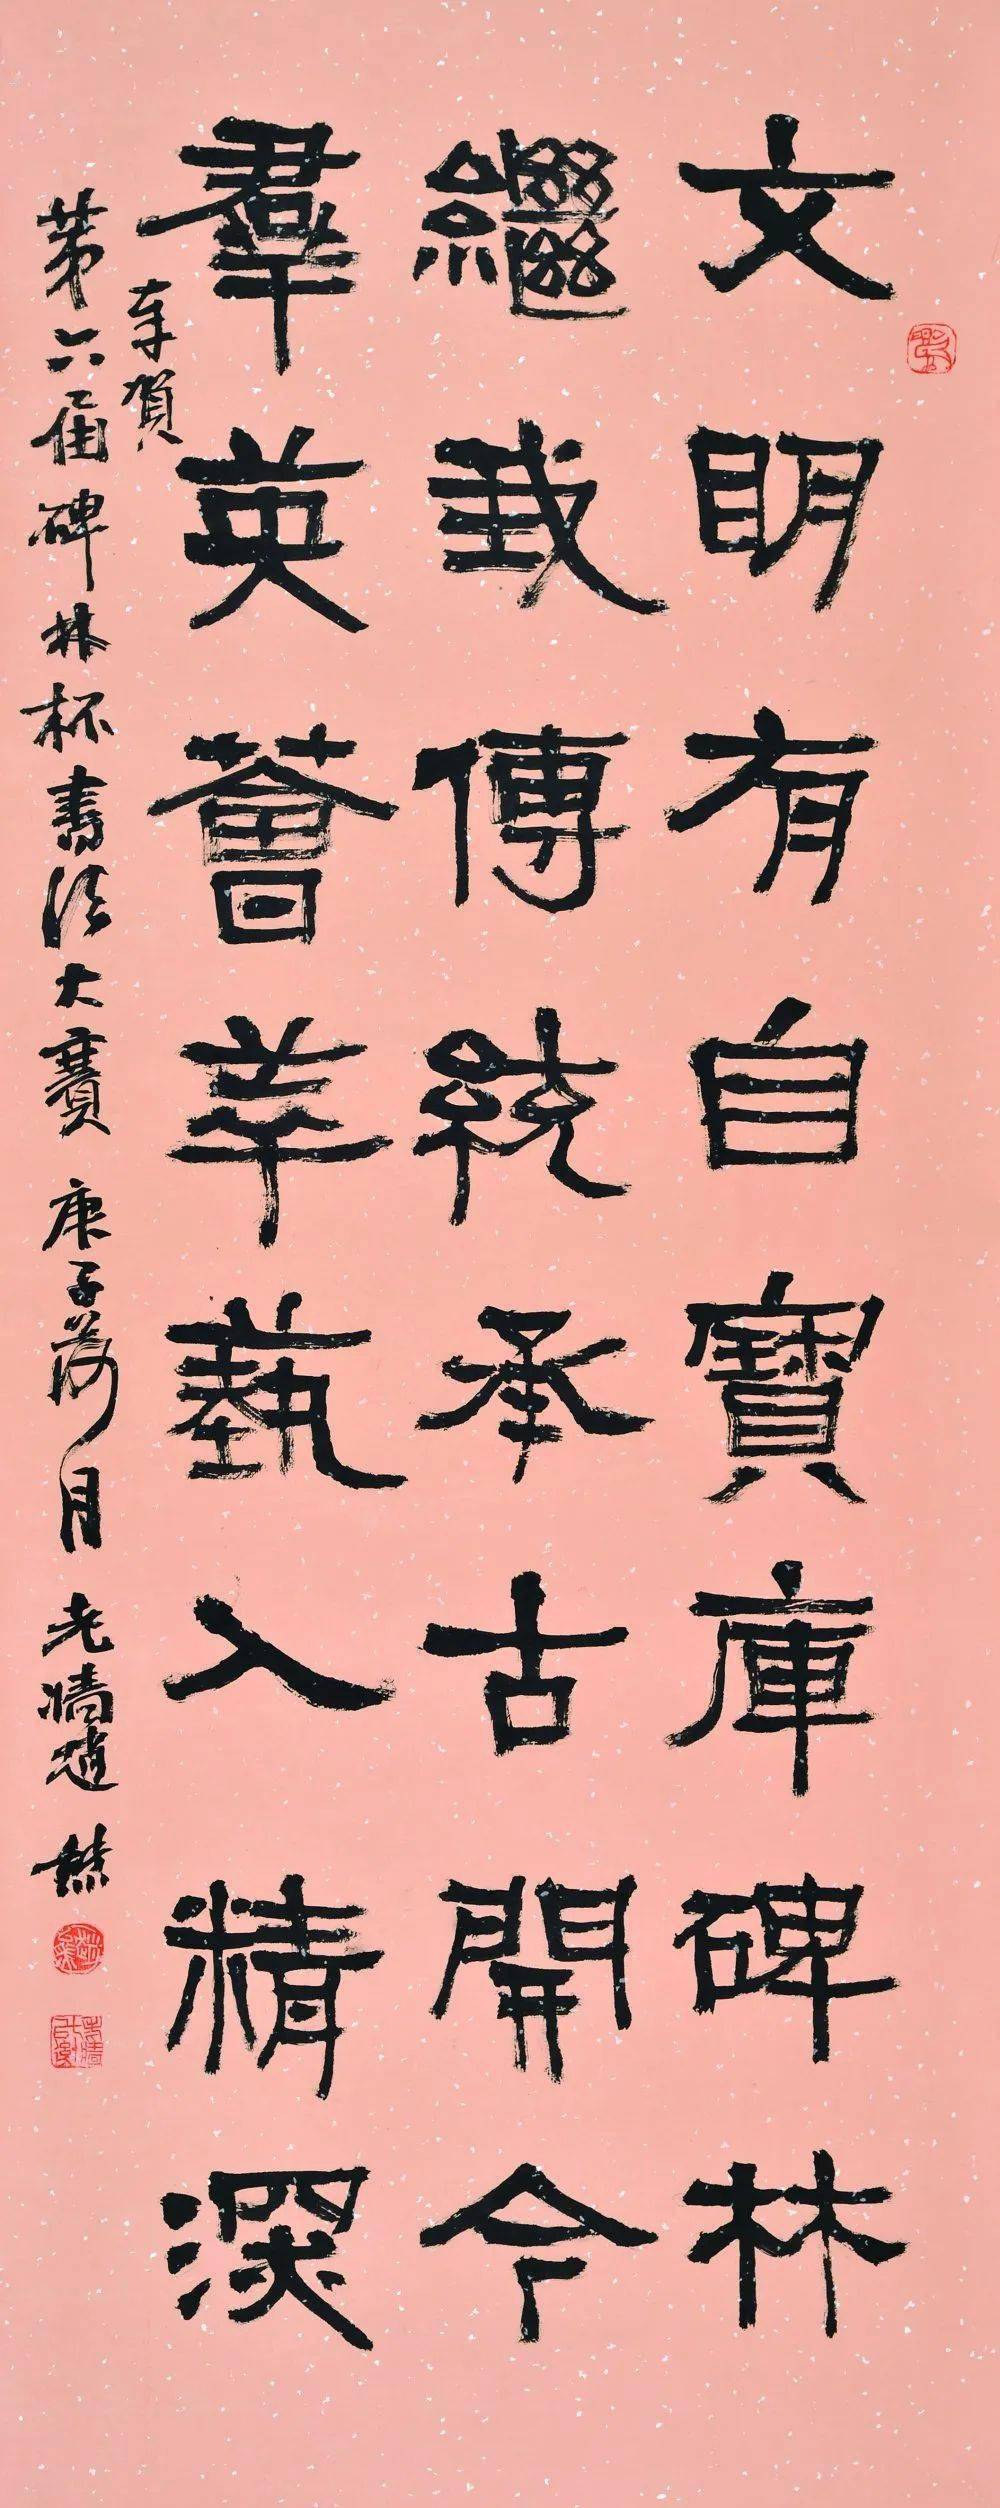 文明有自寶庫碑林
繼我傳統承古開今
羣英薈萃藝入精深
奉賀
第六届碑林杯書法大賽 庚子荷月 老趙熊